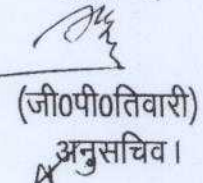 (जी0पी0तिवारी)
अनुसचिव।